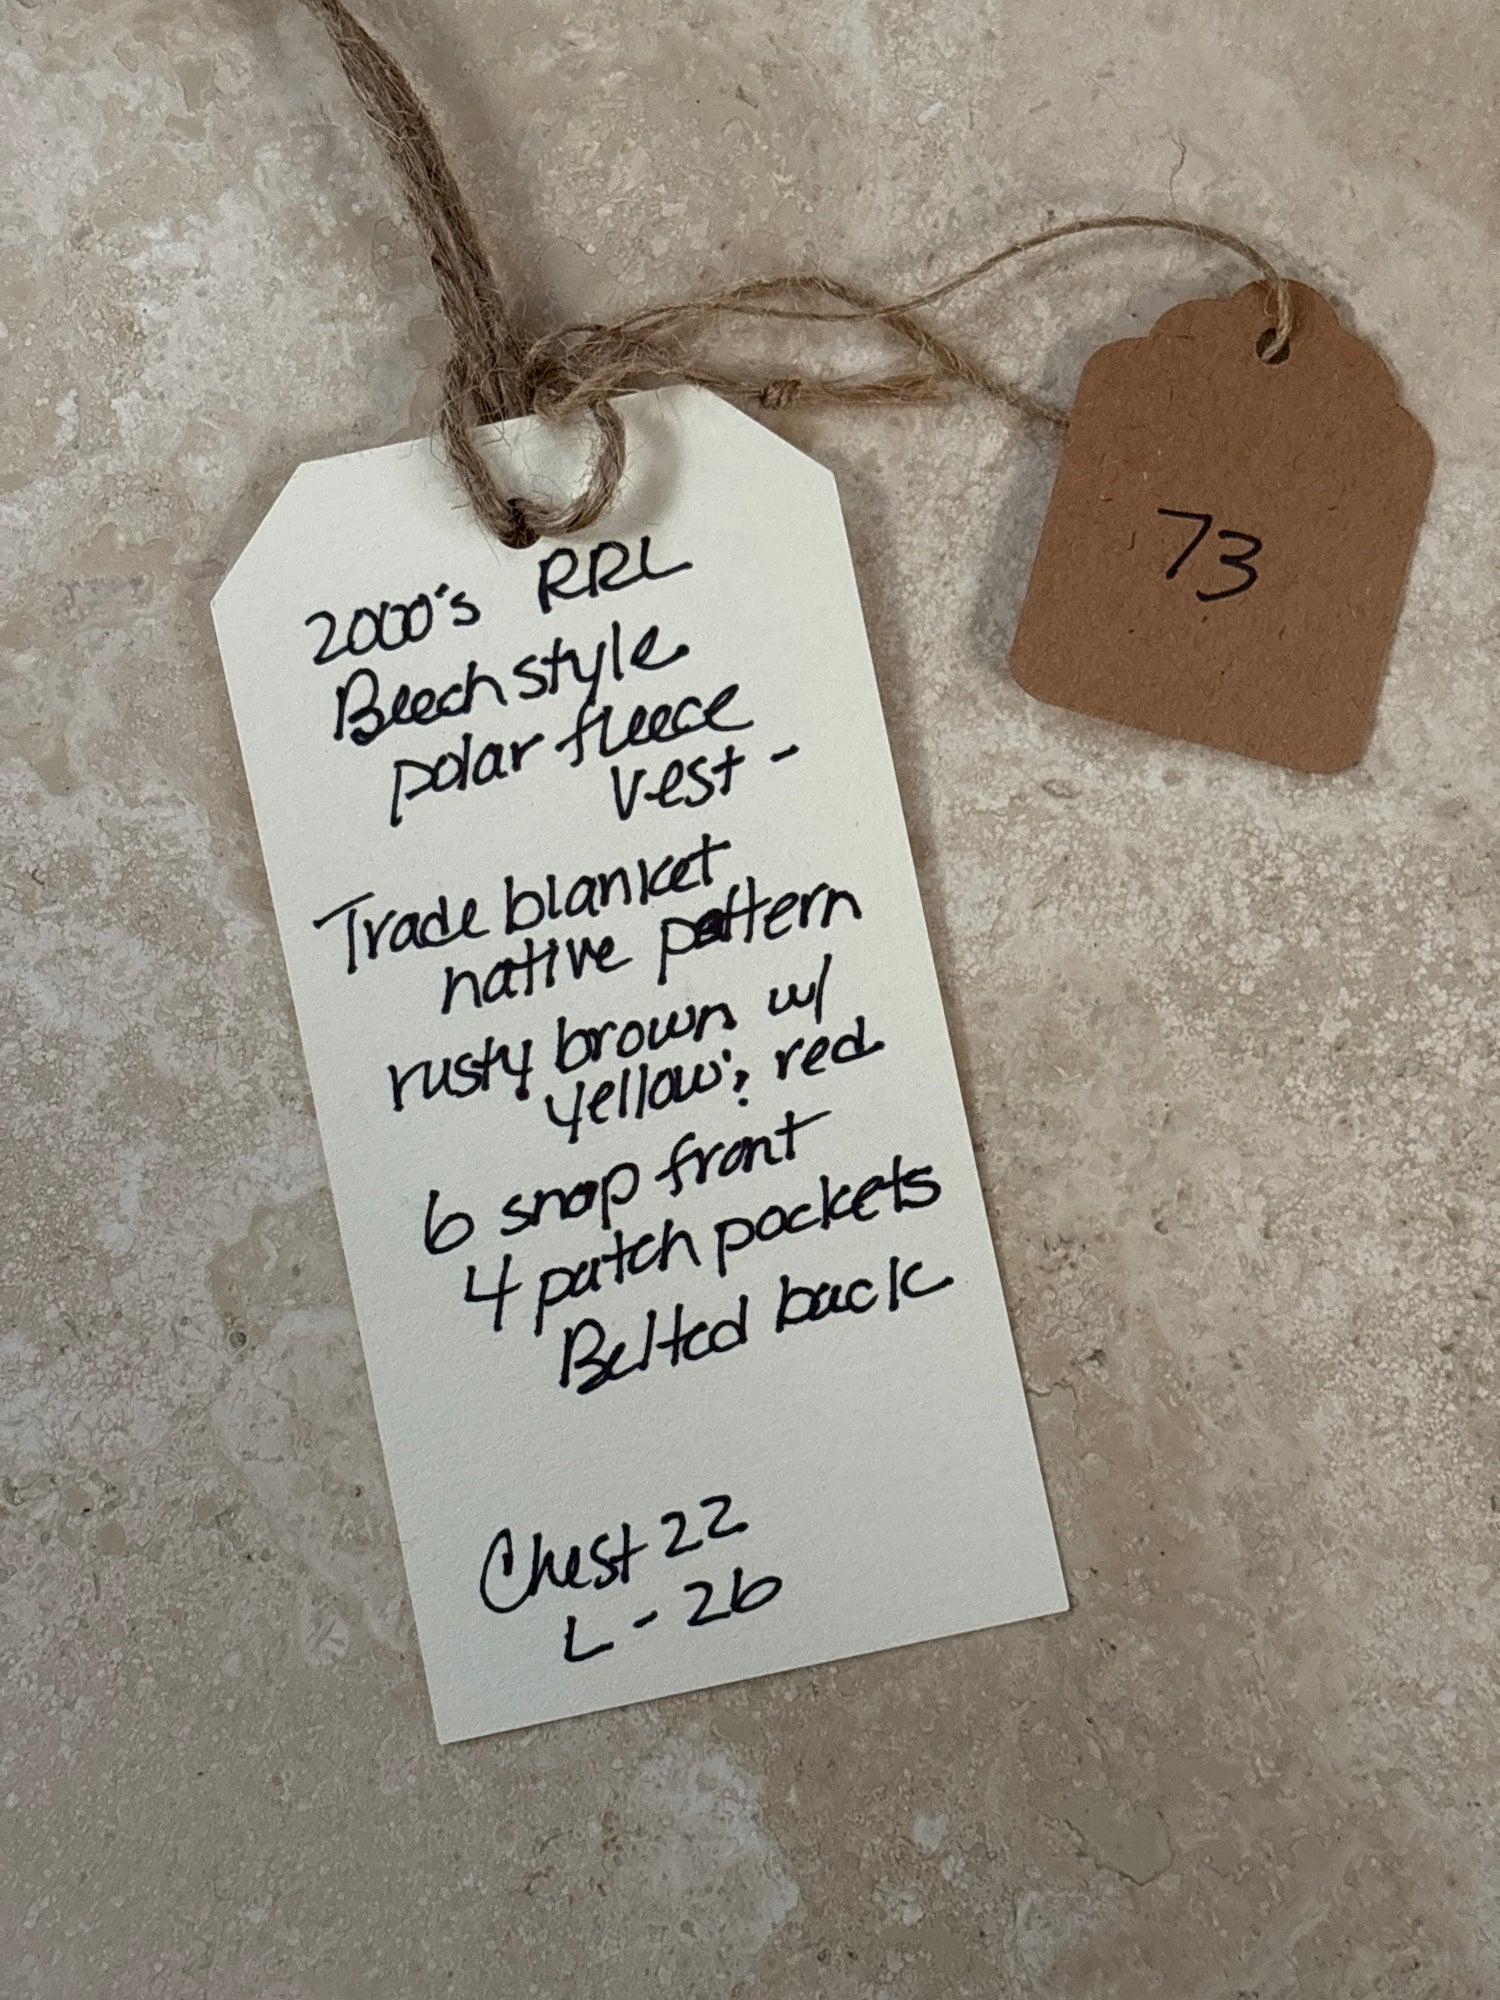 2000's RRL
Beech style
polar fleece
vest -
Trade blanket
native pattern
rusty brown w/
yellow; red
6 snap front
4 patch pockets
Belted back
Chest 22
L - 26
73